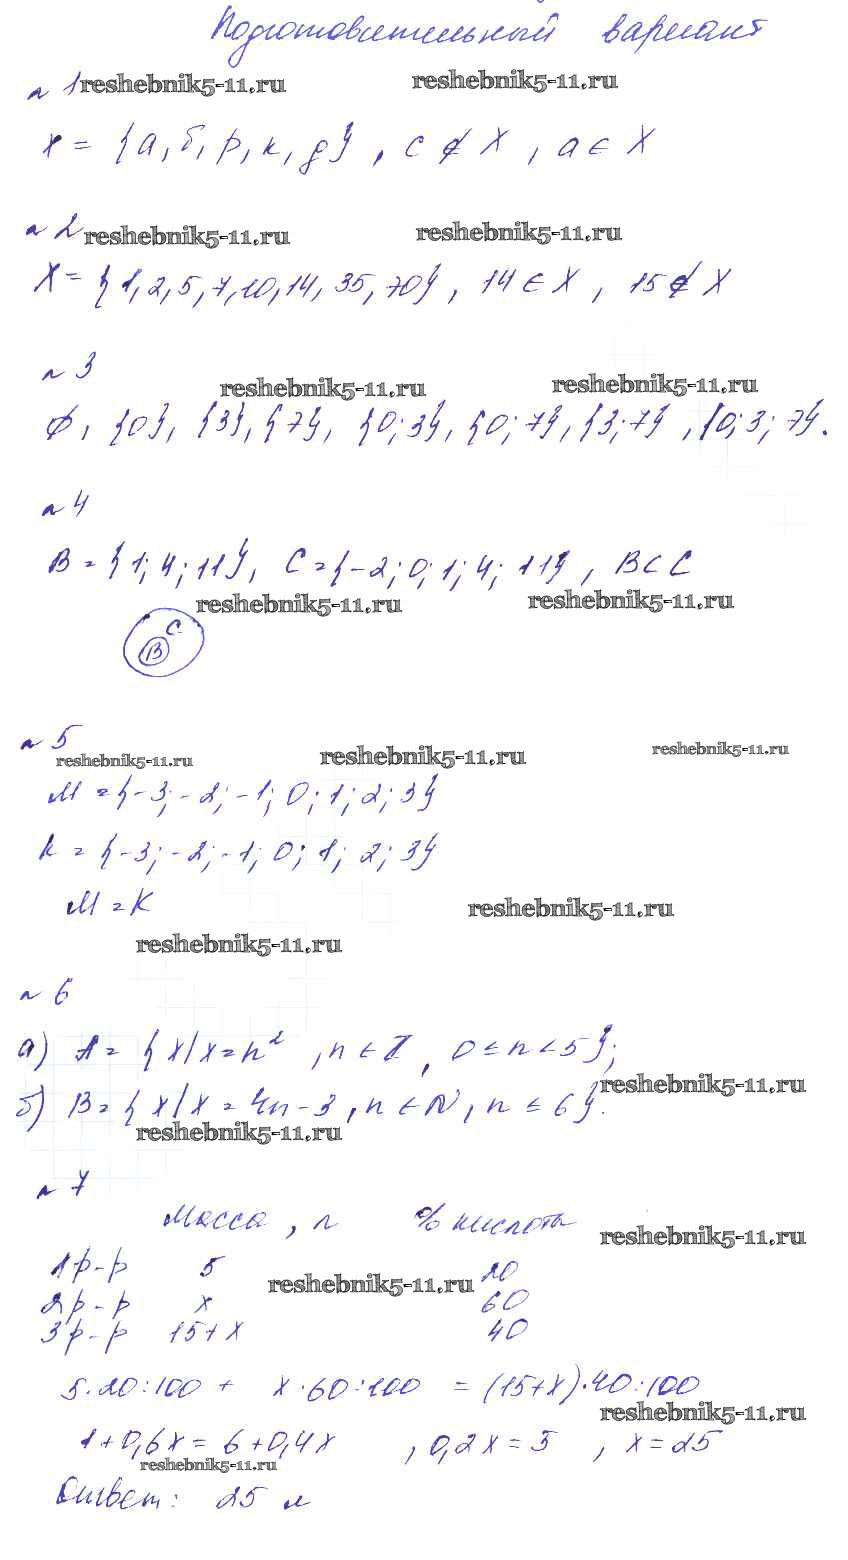 Подготовительный вариант
№ 1 reshebnik5-11.ru reshebnik5-11.ru
X = {а, б, р, к, д}, с ∉ X, а ∈ X
№ 2 reshebnik5-11.ru reshebnik5-11.ru
X = {1, 2, 5, 7, 10, 14, 35, 70}, 14 ∈ X, 15 ∉ X
№ 3
reshebnik5-11.ru reshebnik5-11.ru
∅, {0}, {3}, {7}, {0; 3}, {0; 7}, {3; 7}, {0; 3; 7}.
№ 4
B = {1; 4; 11}, C = {-2; 0; 1; 4; 11}, B ⊂ C
reshebnik5-11.ru reshebnik5-11.ru
C
B
№ 5
reshebnik5-11.ru reshebnik5-11.ru reshebnik5-11.ru
M = {-3; -2; -1; 0; 1; 2; 3}
K = {-3; -2; -1; 0; 1; 2; 3}
M = K
reshebnik5-11.ru
reshebnik5-11.ru
№ 6
а) A = {x/x = n², n ∈ Z, 0 ≤ n < 5};
reshebnik5-11.ru
б) B = {x/x = 4n - 3, n ∈ N, n ≤ 6}.
reshebnik5-11.ru
№ 7
Масса, л % кислоты
reshebnik5-11.ru
1 р-р 5 20
reshebnik5-11.ru
2 р-р x 60
3 р-р 15+x 40
5·20:100 + x·60:100 = (15+x)·40:100
reshebnik5-11.ru
1+0,6x = 6+0,4x, 0,2x = 5, x = 25
reshebnik5-11.ru
Ответ: 25 л